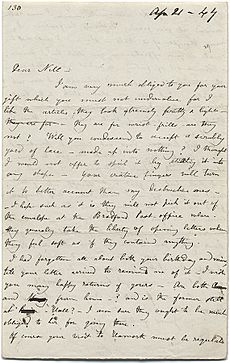 130
Apr 21 - 47
Dear Nell -
I am very much obliged to you for your
gift which you must not undervalue for I
like the articles, they look extremely pretty & light.
They are for wrist frills are they
not? Will you condescend to accept a scrubby
yard of lace - made up into nothing? I thought
I would not offer to spoil it by stitching it into
any shape - Your creative fingers will turn
it to better account than my destructive ones -
I hope such as it is they will not pick it out of
the envelope at the Bradford Post-office where
they generally take the liberty of opening letters when
they feel soft as if they contained anything.
I had forgotten all about both your birthday and mine
till your letter arrived to remind me of it - I wish
you many happy returns of yours - Are both
and from home - ? and is the former still
at Hall? - I am sure they ought to be much
obliged to for going there -
Of course your visit to must be regulated